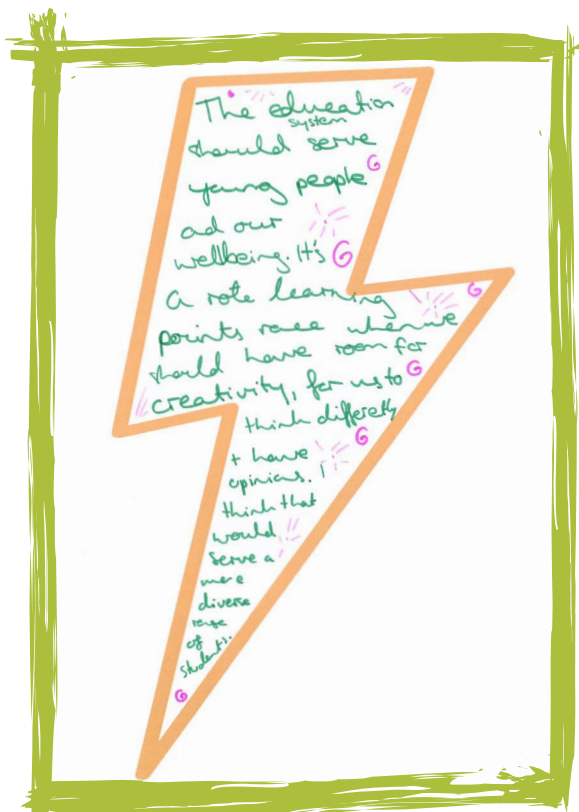 The education
system
should serve
young people
ad our
wellbeing. It's
a rote learning
points race when we
should have room for
creativity, for us to
think differetly
+ have
opinions. I
think that
would
serve a
more
diverse
range
of
students.